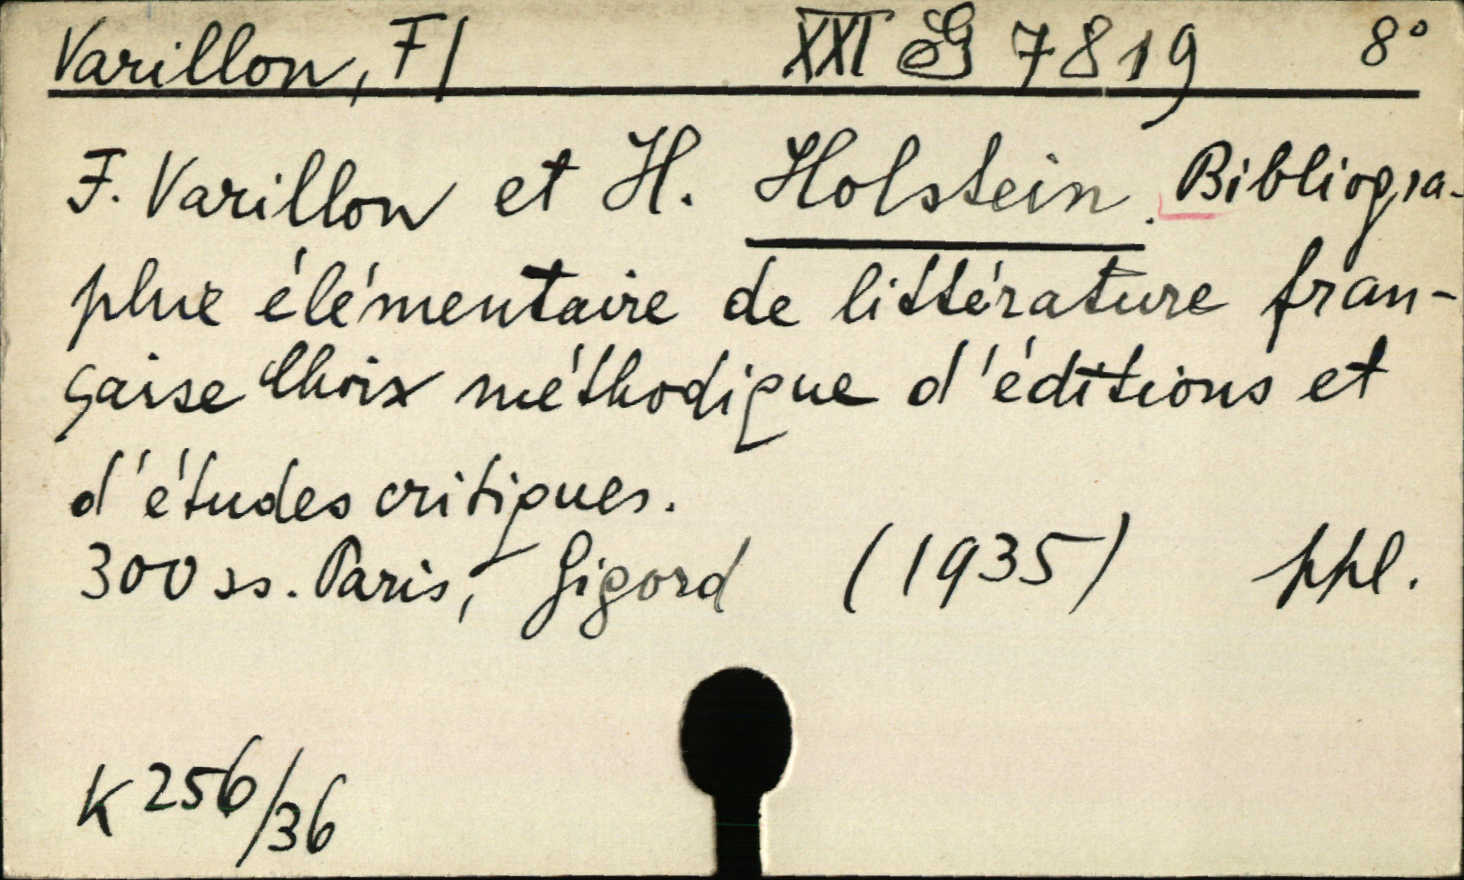 Varillon, F/ XXI G 7819 8°
F. Varillon et H. Holstein. Bibliogra-
phie élémentaire de littérature fran-
çaise Choix méthodique d'éditions et
d'études critiques.
300 ss. Paris, Gigord (1935) ppl.
K 256/36